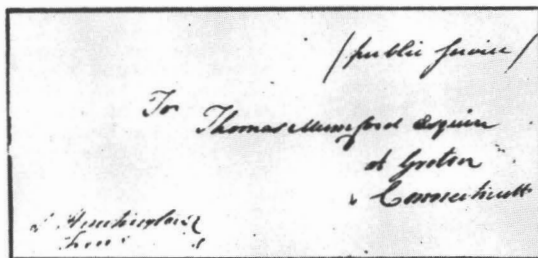 /public service/
To
Thomas Mumford Esquire
at Groton
Connecticutt